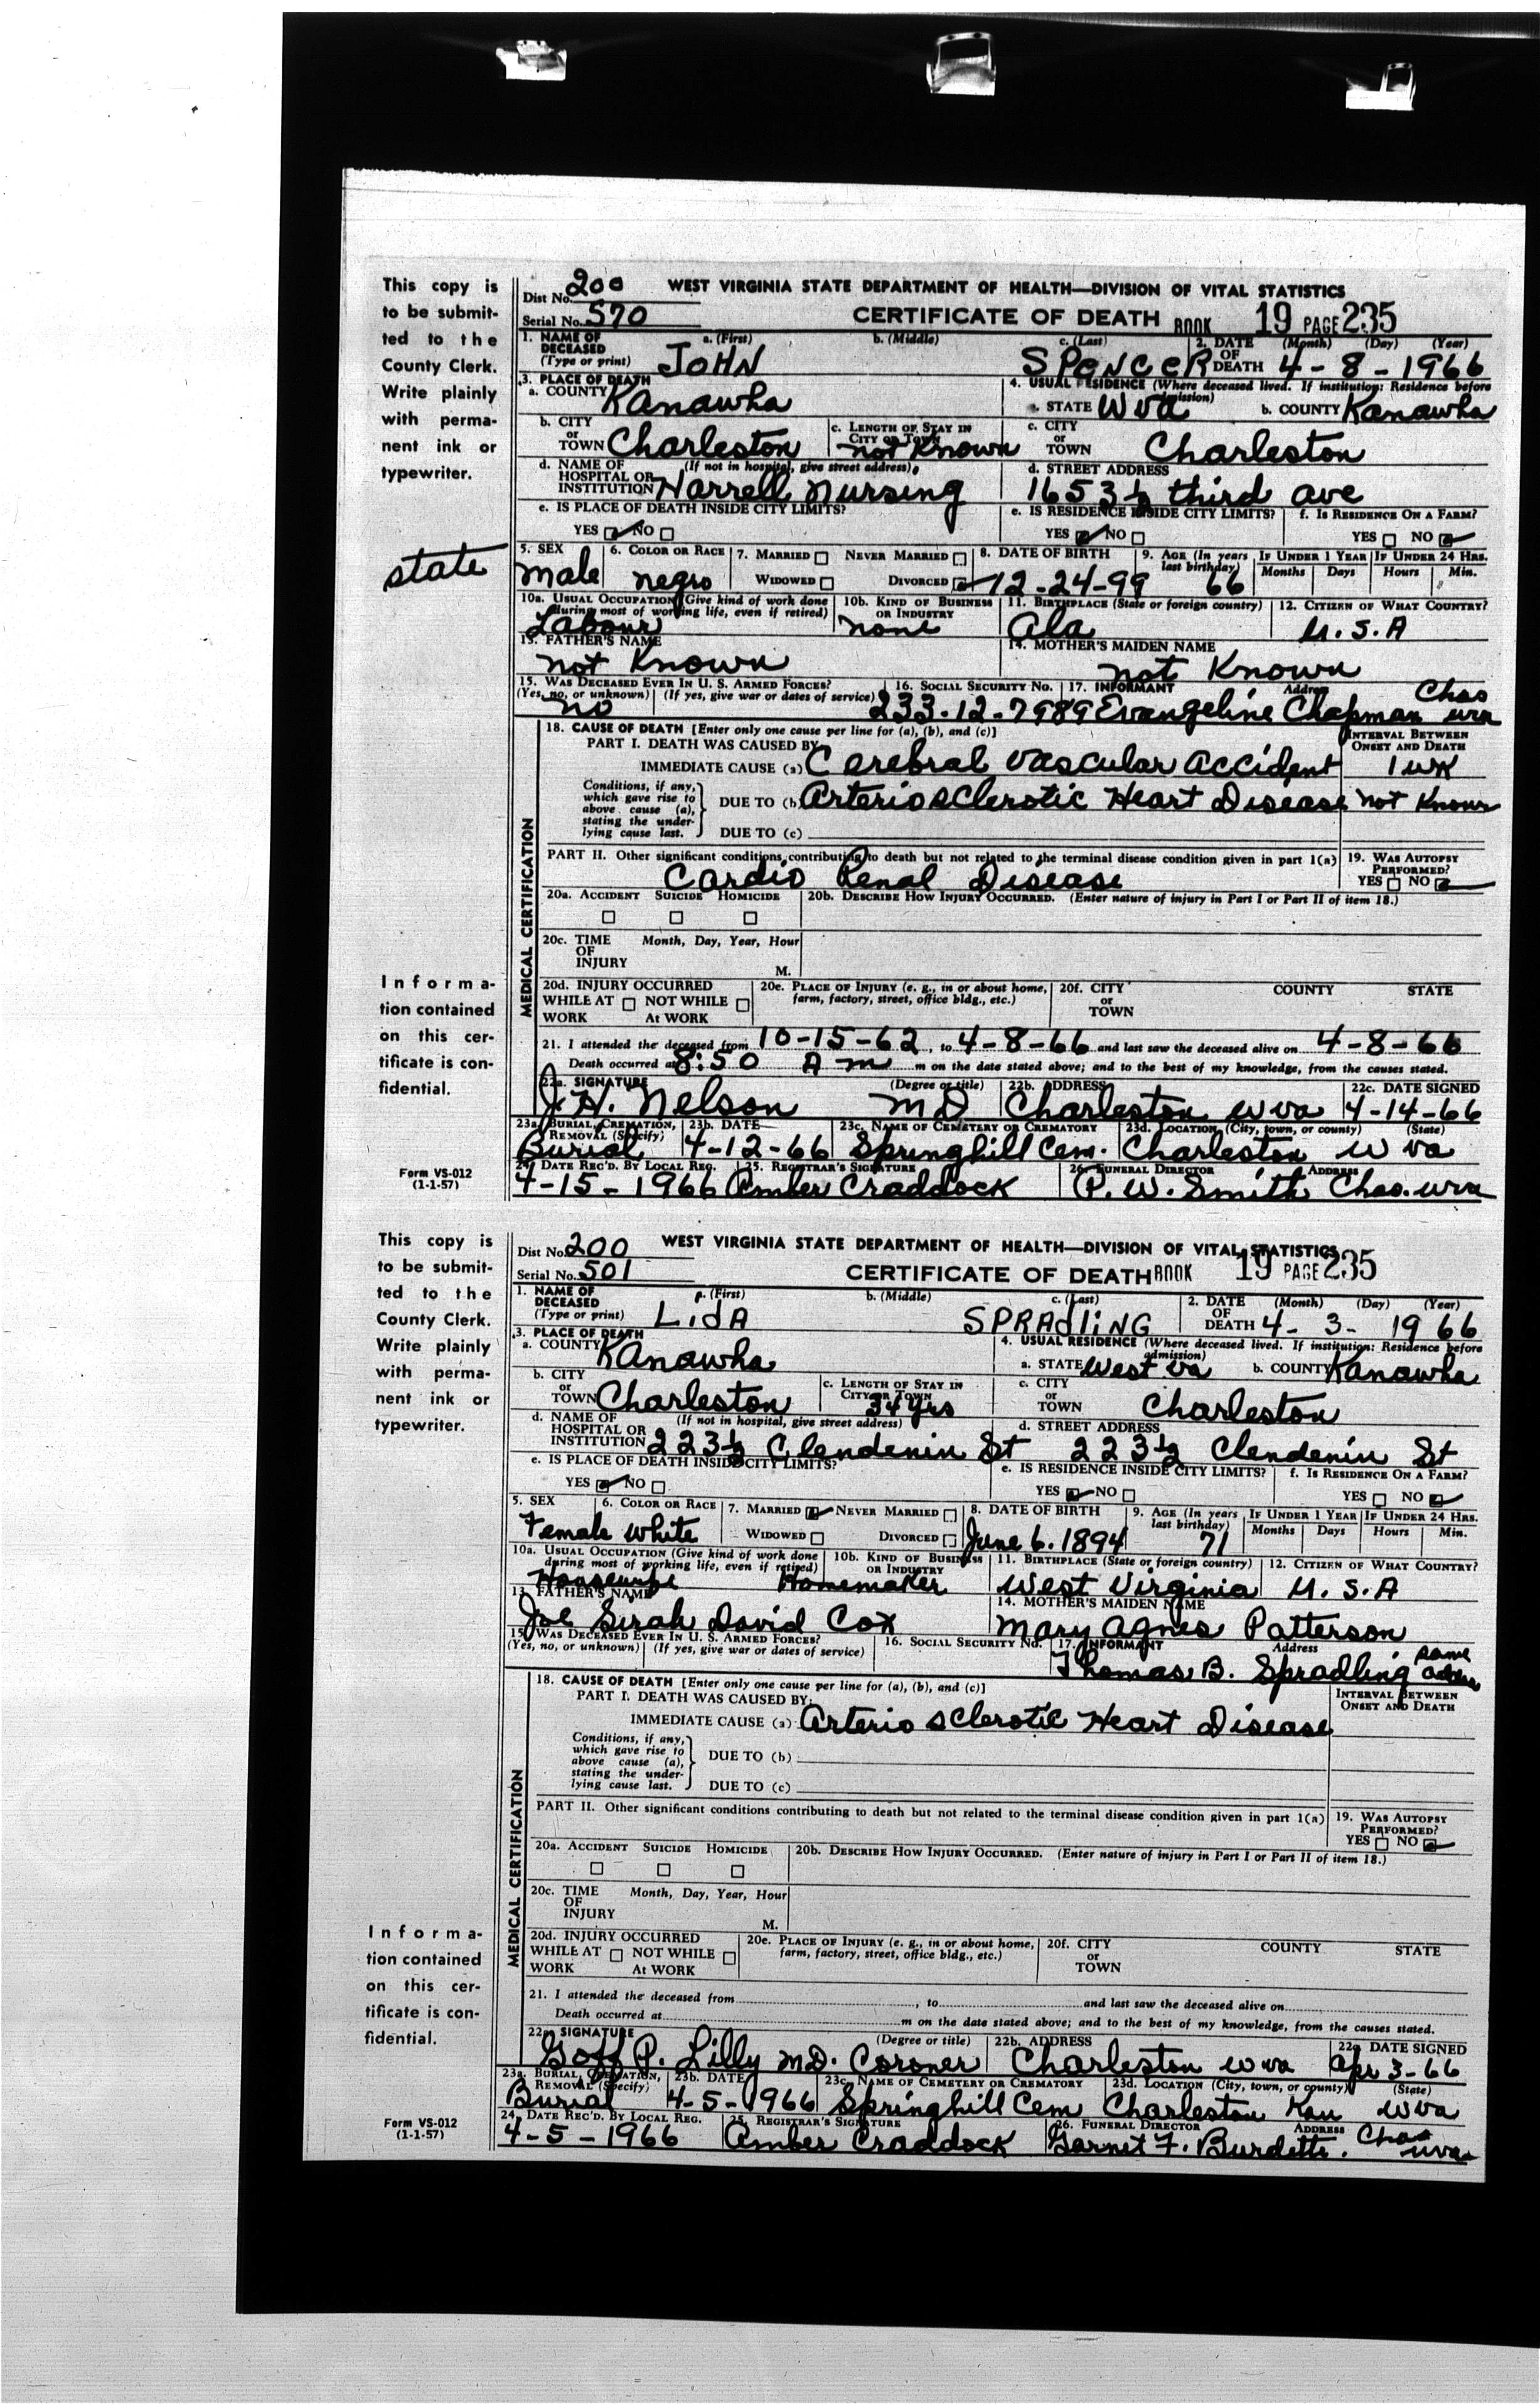 This copy is
to be submit-
ted to the
County Clerk.
Write plainly
with perma-
nent ink or
typewriter.
state
Informa-
tion contained
on this cer-
tificate is con-
fidential.
Form VS-012
(1-1-57)
Dist No. 200 WEST VIRGINIA STATE DEPARTMENT OF HEALTH—DIVISION OF VITAL STATISTICS
Serial No. 570 CERTIFICATE OF DEATH BOOK 19 PAGE 235
1. NAME OF DECEASED (Type or print) a. (First) b. (Middle) c. (Last) 2. DATE OF DEATH (Month) (Day) (Year)
JOHN SPENCER 4-8-1966
3. PLACE OF DEATH 4. USUAL RESIDENCE (Where deceased lived. If institution: Residence before admission)
a. COUNTY Kanawha a. STATE W va b. COUNTY Kanawha
b. CITY or TOWN Charleston c. LENGTH OF STAY IN CITY or TOWN not Known c. CITY or TOWN Charleston
d. NAME OF HOSPITAL OR INSTITUTION (If not in hospital, give street address) Harrell Nursing d. STREET ADDRESS 1653½ third ave
e. IS PLACE OF DEATH INSIDE CITY LIMITS? e. IS RESIDENCE INSIDE CITY LIMITS? f. IS RESIDENCE ON A FARM?
YES NO YES NO YES NO
5. SEX 6. COLOR OR RACE 7. MARRIED NEVER MARRIED 8. DATE OF BIRTH 9. AGE (In years last birthday) IF UNDER 1 YEAR IF UNDER 24 HRS.
male negro WIDOWED DIVORCED 12-24-99 66 Months Days Hours Min.
10a. USUAL OCCUPATION (Give kind of work done during most of working life, even if retired) 10b. KIND OF BUSINESS OR INDUSTRY 11. BIRTHPLACE (State or foreign country) 12. CITIZEN OF WHAT COUNTRY?
Labour none Ala U.S.A
13. FATHER'S NAME 14. MOTHER'S MAIDEN NAME
not Known not Known
15. WAS DECEASED EVER IN U. S. ARMED FORCES? 16. SOCIAL SECURITY No. 17. INFORMANT Address
(Yes, no, or unknown) (If yes, give war or dates of service)
no 233-12-7989 Evangeline Chapman Chas wva
18. CAUSE OF DEATH [Enter only one cause per line for (a), (b), and (c)] INTERVAL BETWEEN ONSET AND DEATH
PART I. DEATH WAS CAUSED BY:
IMMEDIATE CAUSE (a) Cerebral vascular accident 1 wk
Conditions, if any, which gave rise to above cause (a), stating the underlying cause last.
DUE TO (b) Arterio sclerotic Heart Disease not Known
DUE TO (c)
PART II. Other significant conditions contributing to death but not related to the terminal disease condition given in part 1(a) 19. WAS AUTOPSY PERFORMED?
Cardio Renal Disease YES NO
20a. ACCIDENT SUICIDE HOMICIDE 20b. DESCRIBE HOW INJURY OCCURRED. (Enter nature of injury in Part I or Part II of item 18.)
20c. TIME OF INJURY Month, Day, Year, Hour M.
20d. INJURY OCCURRED 20e. PLACE OF INJURY (e. g., in or about home, farm, factory, street, office bldg., etc.) 20f. CITY or TOWN COUNTY STATE
WHILE AT WORK NOT WHILE At WORK
MEDICAL CERTIFICATION
21. I attended the deceased from 10-15-62, to 4-8-66 and last saw the deceased alive on 4-8-66
Death occurred at 8:50 A m m on the date stated above; and to the best of my knowledge, from the causes stated.
22a. SIGNATURE (Degree or title) 22b. ADDRESS 22c. DATE SIGNED
J. H. Nelson MD Charleston W va 4-14-66
23a. BURIAL, CREMATION, REMOVAL (Specify) 23b. DATE 23c. NAME OF CEMETERY OR CREMATORY 23d. LOCATION (City, town, or county) (State)
Burial 4-12-66 Springhill Cem. Charleston W va
24. DATE REC'D. BY LOCAL REG. 25. REGISTRAR'S SIGNATURE 26. FUNERAL DIRECTOR ADDRESS
4-15-1966 Amber Craddock P. W. Smith Chas. wva
This copy is
to be submit-
ted to the
County Clerk.
Write plainly
with perma-
nent ink or
typewriter.
Informa-
tion contained
on this cer-
tificate is con-
fidential.
Form VS-012
(1-1-57)
Dist No. 200 WEST VIRGINIA STATE DEPARTMENT OF HEALTH—DIVISION OF VITAL STATISTICS
Serial No. 501 CERTIFICATE OF DEATH BOOK 19 PAGE 235
1. NAME OF DECEASED (Type or print) a. (First) b. (Middle) c. (Last) 2. DATE OF DEATH (Month) (Day) (Year)
LidA SPRAdliNG 4-3-1966
3. PLACE OF DEATH 4. USUAL RESIDENCE (Where deceased lived. If institution: Residence before admission)
a. COUNTY Kanawha a. STATE West va b. COUNTY Kanawha
b. CITY or TOWN Charleston c. LENGTH OF STAY IN CITY or TOWN 34 yrs c. CITY or TOWN Charleston
d. NAME OF HOSPITAL OR INSTITUTION (If not in hospital, give street address) 223½ Clendenin St d. STREET ADDRESS 223½ Clendenin St
e. IS PLACE OF DEATH INSIDE CITY LIMITS? e. IS RESIDENCE INSIDE CITY LIMITS? f. IS RESIDENCE ON A FARM?
YES NO YES NO YES NO
5. SEX 6. COLOR OR RACE 7. MARRIED NEVER MARRIED 8. DATE OF BIRTH 9. AGE (In years last birthday) IF UNDER 1 YEAR IF UNDER 24 HRS.
Female white WIDOWED DIVORCED June 6. 1894 71 Months Days Hours Min.
10a. USUAL OCCUPATION (Give kind of work done during most of working life, even if retired) 10b. KIND OF BUSINESS OR INDUSTRY 11. BIRTHPLACE (State or foreign country) 12. CITIZEN OF WHAT COUNTRY?
Housewife Homemaker West Virginia U.S.A
13. FATHER'S NAME 14. MOTHER'S MAIDEN NAME
Joe Serah David Cox Mary Agnes Patterson
15. WAS DECEASED EVER IN U. S. ARMED FORCES? 16. SOCIAL SECURITY No. 17. INFORMANT Address
(Yes, no, or unknown) (If yes, give war or dates of service)
Thomas B. Spradling same
18. CAUSE OF DEATH [Enter only one cause per line for (a), (b), and (c)] INTERVAL BETWEEN ONSET AND DEATH
PART I. DEATH WAS CAUSED BY:
IMMEDIATE CAUSE (a) Arterio sclerotic Heart Disease
Conditions, if any, which gave rise to above cause (a), stating the underlying cause last.
DUE TO (b)
DUE TO (c)
PART II. Other significant conditions contributing to death but not related to the terminal disease condition given in part 1(a) 19. WAS AUTOPSY PERFORMED?
YES NO
20a. ACCIDENT SUICIDE HOMICIDE 20b. DESCRIBE HOW INJURY OCCURRED. (Enter nature of injury in Part I or Part II of item 18.)
20c. TIME OF INJURY Month, Day, Year, Hour M.
20d. INJURY OCCURRED 20e. PLACE OF INJURY (e. g., in or about home, farm, factory, street, office bldg., etc.) 20f. CITY or TOWN COUNTY STATE
WHILE AT WORK NOT WHILE At WORK
MEDICAL CERTIFICATION
21. I attended the deceased from , to and last saw the deceased alive on
Death occurred at m on the date stated above; and to the best of my knowledge, from the causes stated.
22a. SIGNATURE (Degree or title) 22b. ADDRESS 22c. DATE SIGNED
Goff P. Lilly MD. Coroner Charleston W va Apr 3-66
23a. BURIAL, CREMATION, REMOVAL (Specify) 23b. DATE 23c. NAME OF CEMETERY OR CREMATORY 23d. LOCATION (City, town, or county) (State)
Burial 4-5-1966 Springhill Cem Charleston Kan W va
24. DATE REC'D. BY LOCAL REG. 25. REGISTRAR'S SIGNATURE 26. FUNERAL DIRECTOR ADDRESS
4-5-1966 Amber Craddock Garnet F. Burdette. Chas wva